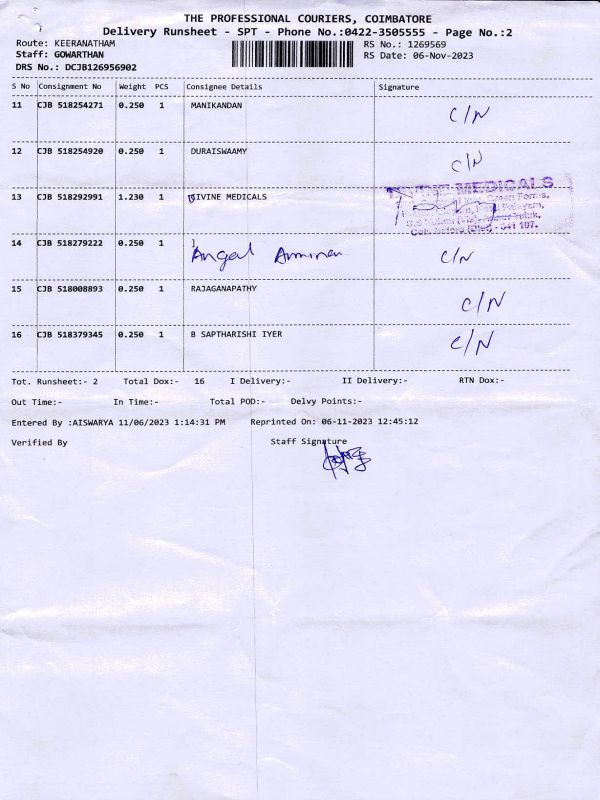 THE PROFESSIONAL COURIERS, COIMBATORE
Delivery Runsheet - SPT - Phone No.:0422-3505555 - Page No.:2
Route: KEERANATHAM RS No.: 1269569
Staff: GOWARTHAN RS Date: 06-Nov-2023
DRS No.: DCJB126956902
S No Consignment No Weight PCS Consignee Details Signature
11 CJB 518254271 0.250 1 MANIKANDAN C/N
12 CJB 518254920 0.250 1 DURAISWAAMY C/N
13 CJB 518292991 1.230 1 DIVINE MEDICALS DIVINE MEDICALS
Green Farms,
641 107.
14 CJB 518279222 0.250 1 Angel C/N
15 CJB 518008893 0.250 1 RAJAGANAPATHY C/N
16 CJB 518379345 0.250 1 B SAPTHARISHI IYER C/N
Tot. Runsheet:- 2 Total Dox:- 16 I Delivery:- II Delivery:- RTN Dox:-
Out Time:- In Time:- Total POD:- Delvy Points:-
Entered By :AISWARYA 11/06/2023 1:14:31 PM Reprinted On: 06-11-2023 12:45:12
Verified By Staff Signature